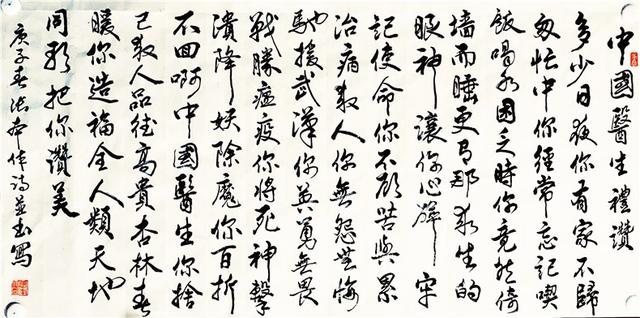 中國醫生禮讚
多少日夜你有家不歸
匆忙中你經常忘記喫
飯喝水困乏時你竟然倚
墻而睡更有那求生的
眼神讓你心碎牢
記使命你不顧苦與累
治病救人你無怨無悔
馳援武漢你英勇無畏
戰勝瘟疫你將死神擊
潰降妖除魔你百折
不回啊中國醫生你捨
己救人品德高貴杏林春
暖你造福全人類天地
同 把你讚美
庚子春張本 詩並書寫